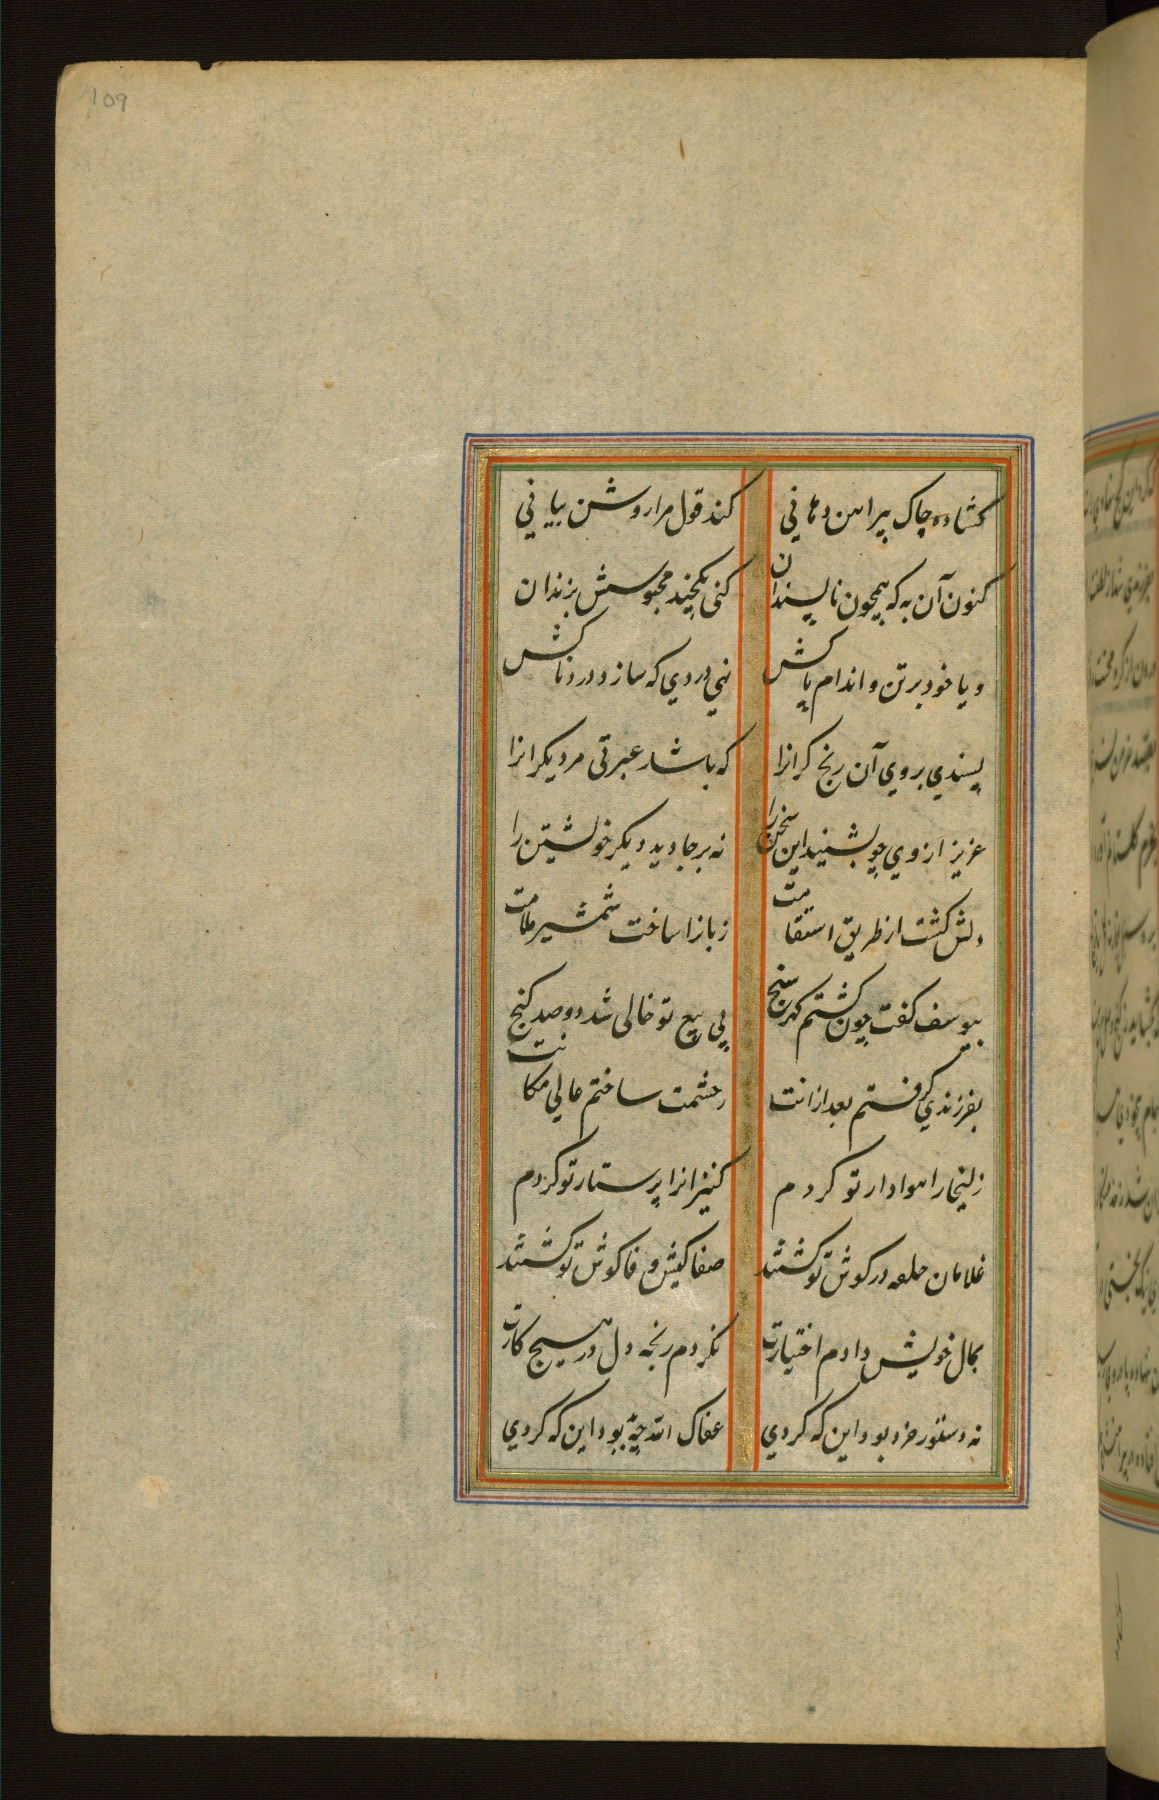 109
کشاده چاک پیراهن دهانی کند قول مرا روشن بیانی
کنون آن به که همچون ناپسندان کنی یکچند محبوسش بزندان
و یا خود بر تن و اندام پاکش نهی دردی که سازد دردناکش
پسندی بروی آن رنج کرانرا که باشد عبرتی مر دیکرانرا
عزیز از وی چو بشنید این سخن را نه بر جا دید دیکر خویشتن را
دلش کشت از طریق استقامت زبانرا ساخت شمشیر ملامت
بیوسف کفت چون کشتم کهر سنج پی بیع تو خالی شد دوصد کنج
بفرزندی کرفتم بعد ازانت ز حشمت ساختم عالی مکانت
زلیخا را هوادار تو کردم کنیزانرا پرستار تو کردم
غلامان حلقه در کوش تو کشتند صفا کیش و وفا کوش تو کشتند
بمال خویش دادم اختیارت نکردم رنجه دل در هیچ کارت
نه دستور خرد بود این که کردی عفاک الله چه بود این که کردی